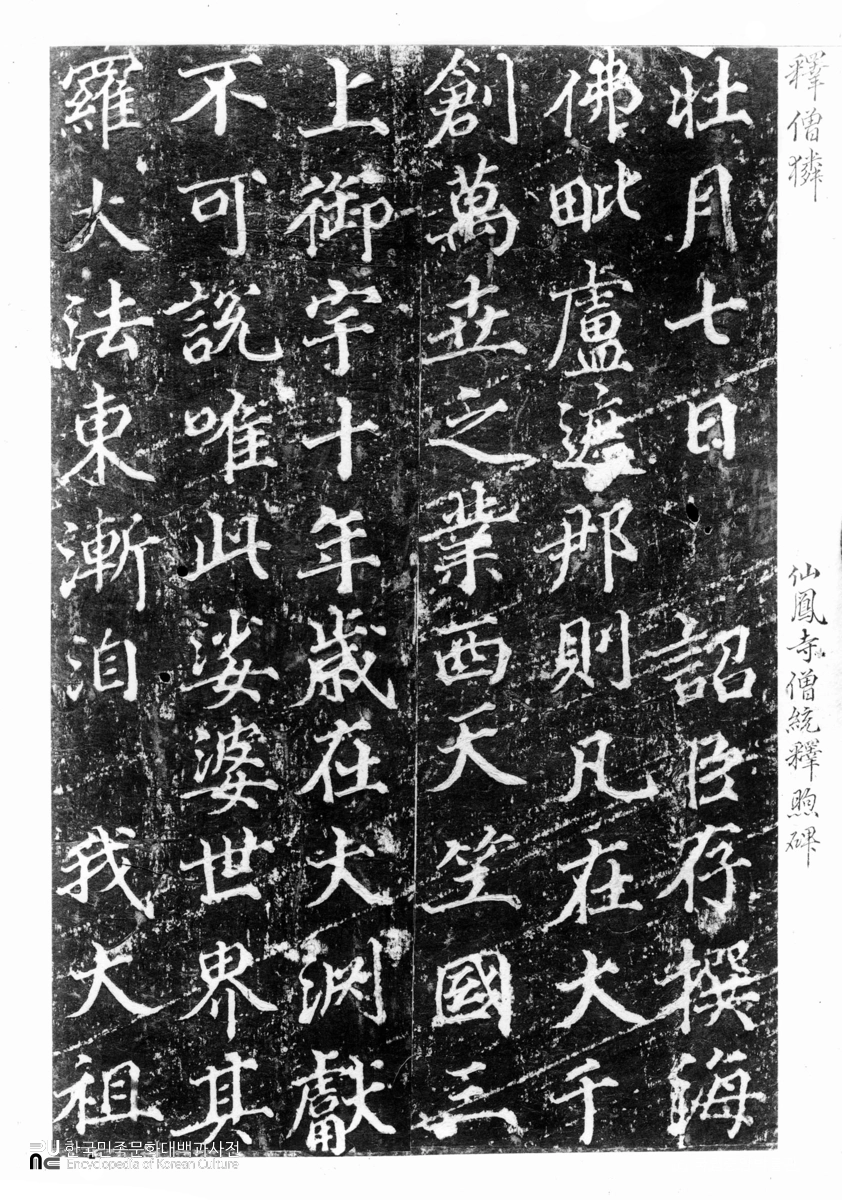 釋僧獜
仙鳳寺僧統釋煦碑
壯月七日　詔臣存撰海
佛毗盧遮那則凡在大千
創萬世之業西天竺國三
上御宇十年歲在大淵獻
不可說唯此娑婆世界其
羅大法東漸洎　我大祖
한국민족문화대백과사전
Encyclopedia of Korean Culture